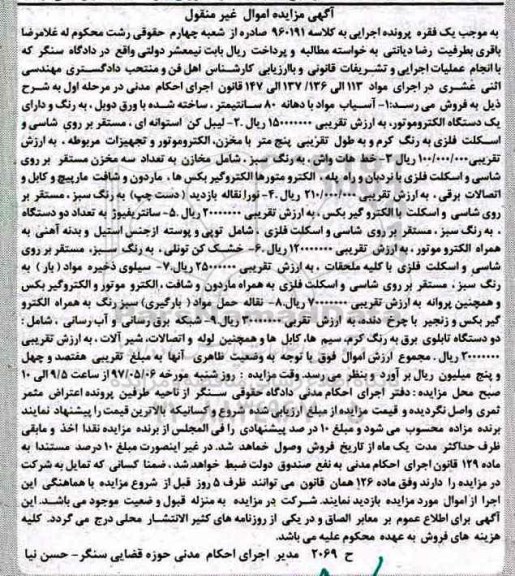 آگهی مزایده اموال غیر منقول
به موجب یک فقره پرونده اجرایی به کلاسه ۹۶۰۱۹۱ صادره از شعبه چهارم حقوقی رشت محکوم له غلامرضا
باقری بطرفیت رضا دیانتی به خواسته مطالبه و پرداخت ریال بابت نیمعشر دولتی واقع در دادگاه سنگر که
با انجام عملیات اجرایی و تشریفات قانونی و باارزیابی کارشناس اهل فن و منتخب دادگستری مهندسی
اثنی عشری در اجرای مواد ۱۱۳ الی ۱۳۶/ ۱۳۷ الی ۱۴۷ قانون اجرای احکام مدنی در مرحله اول به شرح
ذیل به فروش می رسد:۱- آسیاب مواد با دهانه ۸۰ سانتیمتر ، ساخته شده با ورق دوبل ، به رنگ و دارای
یک دستگاه الکتروموتور، به ارزش تقریبی ۱۵۰۰۰۰۰۰۰ ریال .۲- لیبل کن استوانه ای ، مستقر بر روی شاسی و
اسکلت فلزی به رنگ کرم و به طول تقریبی پنج متر با مخزن، الکتروموتور و تجهیزات مربوطه ، به ارزش
تقریبی ۱۰۰/۰۰۰/۰۰۰ ریال ۳- خط هات واش ، به رنگ سبز ، شامل مخازن به تعداد سه مخزن مستقر بر روی
شاسی و اسکلت فلزی با نردبان و راه پله ، الکترو متورها الکتروگیر بکس ها ، ماردون و شافت مارپیچ و کابل و
اتصالات برقی ، به ارزش تقریبی ۲۱۰/۰۰۰/۰۰۰ ریال .۴- نورا نقاله بازدید ( دست چپ) به رنگ سبز ، مستقر بر
روی شاسی و اسکلت با الکترو گیر بکس ، به ارزش تقریبی ۲۰۰۰۰۰۰۰ ریال .۵- سانتریفیوژ به تعداد دو دستگاه
، به رنگ سبز ، مستقر بر روی شاسی و اسکلت فلزی ، شامل توپی و پوسته ازجنس استیل و بدنه آهنی به
همراه الکترو موتور ، به ارزش تقریبی ۱۲۰۰۰۰۰۰۰ ریال .۶- خشک کن تونلی ، به رنگ سبز، مستقر بر روی
شاسی و اسکلت فلزی با کلیه ملحقات ، به ارزش تقریبی ۲۵۰۰۰۰۰۰ ریال.۷- سیلوی ذخیره مواد ( بار ) به
رنگ سبز ، مستقر بر روی شاسی و اسکلت فلزی به همراه ماردون و شافت ، الکترو موتور و الکتروگیر بکس
و همچنین پروانه به ارزش تقریبی ۷۰۰۰۰۰۰۰ ریال.۸- نقاله حمل مواد ( بارگیری) سبز رنگ به همراه الکترو
گیر بکس و زنجیر با چرخ دنده، به ارزش تقربی ۳۰۰۰۰۰۰۰ ریال.۹- شبکه برق رسانی و آب رسانی ، شامل :
دو دستگاه تابلوی برق به رنگ کرم، سیم ها، کابل ها و همچنین لوله و اتصالات، شیر آلات ، به ارزش تقریبی
۲۰۰۰۰۰۰۰ ریال . مجموع ارزش اموال فوق با توجه به وضعیت ظاهری آنها به مبلغ تقریبی هفتصد و چهل
و پنج میلیون ریال بر آورد و بنظر می رسد. وقت مزایده : روز شنبه مورخه ۹۷/۰۵/۰۶ از ساعت ۹/۵ الی ۱۰
صبح محل مزایده : دفتر اجرای احکام مدنی دادگاه حقوقی سنگر از ناحیه طرفین پرونده اعتراض مثمر
ثمری واصل نگردیده و قیمت مزایده از مبلغ ارزیابی شده شروع و کسانیکه بالاترین قیمت را پیشنهاد نمایند
برنده مزاده محسوب می شود و مبلغ ۱۰ در صد پیشنهادی را فی المجلس از برنده مزایده نقدا اخذ و مابقی
ظرف حداکثر مدت یک ماه از تاریخ فروش وصول خماهد شد. در غیر اینصورت مبلغ ۱۰ درصد مستندا به
ماده ۱۲۹ قانون اجرای احکام مدنی به نفع صندوق دولت ضبط خواهدشد ، ضمنا کسانی که تمایل به شرکت
در مزایده را دارند وفق ماده ۱۲۶ همان قانون می توانند ظرف ۵ روز قبل از شروع مزایده با هماهنگی این
اجرا از اموال مورد مزایده بازدید نمایند. شرکت در مزایده به منزله قبول و ضعیت موجود می باشد. این
آگهی برای اطلاع عموم بر معابر الصاق و در یکی از روزنامه های کثیر الانتشار محلی درج می گردد. کلیه
هزینه های فروش به عهده محکوم علیه می باشد.
ح ۲۰۶۹ مدیر اجرای احکام مدنی حوزه قضایی سنگر- حسن نیا